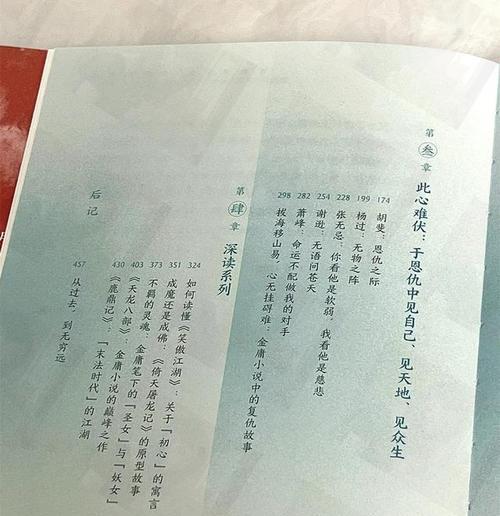 第叁章
此心难伏：于恩仇中见自己、见天地、见众生
174 胡斐：恩仇之际
199 杨过：无物之阵
228 张无忌：你看他是软弱，我看他是慈悲
254 谢逊：无语问苍天
282 萧峰：命运不配做我的对手
298 拔海移山易，心无挂碍难：金庸小说中的复仇故事
第肆章
深读系列
324 如何读懂《笑傲江湖》：关于“初心”的寓言
351 成魔还是成佛：《倚天屠龙记》的原型故事
373 不羁的灵魂：金庸笔下的“圣女”与“妖女”
403 《天龙八部》：金庸小说的巅峰之作
430 《鹿鼎记》：“末法时代”的江湖
后记
457 从过去，到无穷远